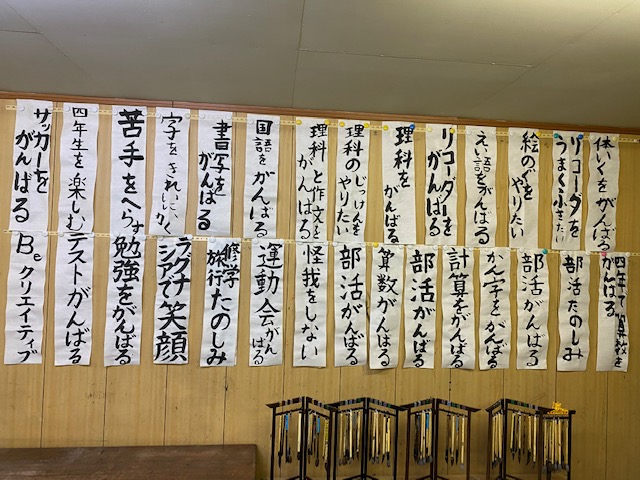 体いくをがんばる
リコーダを
うまくふきたい
絵のぐを
やりたい
えい語をがんばる
リコーダーを
がんばる
理科を
がんばる
理科のじっけんを
やりたい
理科と作文を
がんばる
国語をがんばる
書写を
がんばる
字をきれいにかく
苦手をへらす
四年生を楽しむ
サッカーを
がんばる
四年で算数を
がんばる
部活たのしみ
部活がんばる
かん字をがんばる
計算をがんばる
部活がんばる
算数がんばる
部活がんばる
怪我をしない
運動会がんばる
修学
旅行たのしみ
ラグナ
シアで笑顔
勉強をがんばる
テストがんばる
Beクリエイティブ